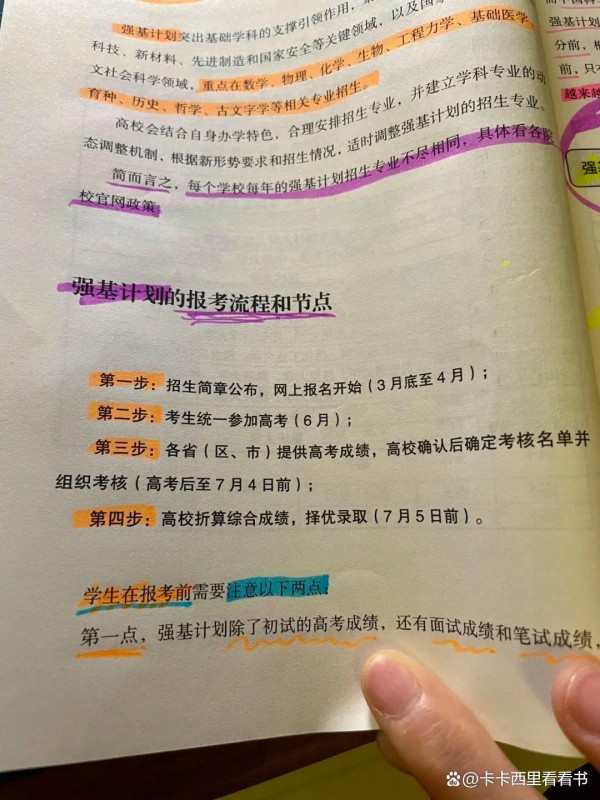 强基计划突出基础学科的支撑引领作用，
科技、新材料、先进制造和国家安全等关键领域，以及国家
文社会科学领域，重点在数学、物理、化学、生物、工程力学、基础医学、
育种、历史、哲学、古文字学等相关专业招生。
高校会结合自身办学特色，合理安排招生专业，并建立学科专业的动
态调整机制，根据新形势要求和招生情况，适时调整强基计划的招生专业。
简而言之，每个学校每年的强基计划招生专业不尽相同，具体看各院
校官网政策。
强基计划的报考流程和节点
第一步：招生简章公布，网上报名开始（3月底至4月）；
第二步：考生统一参加高考（6月）；
第三步：各省（区、市）提供高考成绩，高校确认后确定考核名单并
组织考核（高考后至7月4日前）；
第四步：高校折算综合成绩，择优录取（7月5日前）。
学生在报考前需要注意以下两点：
第一点，强基计划除了初试的高考成绩，还有面试成绩和笔试成绩，
强基计划
分前，
前，只
越来越
强
@卡卡西里看看书